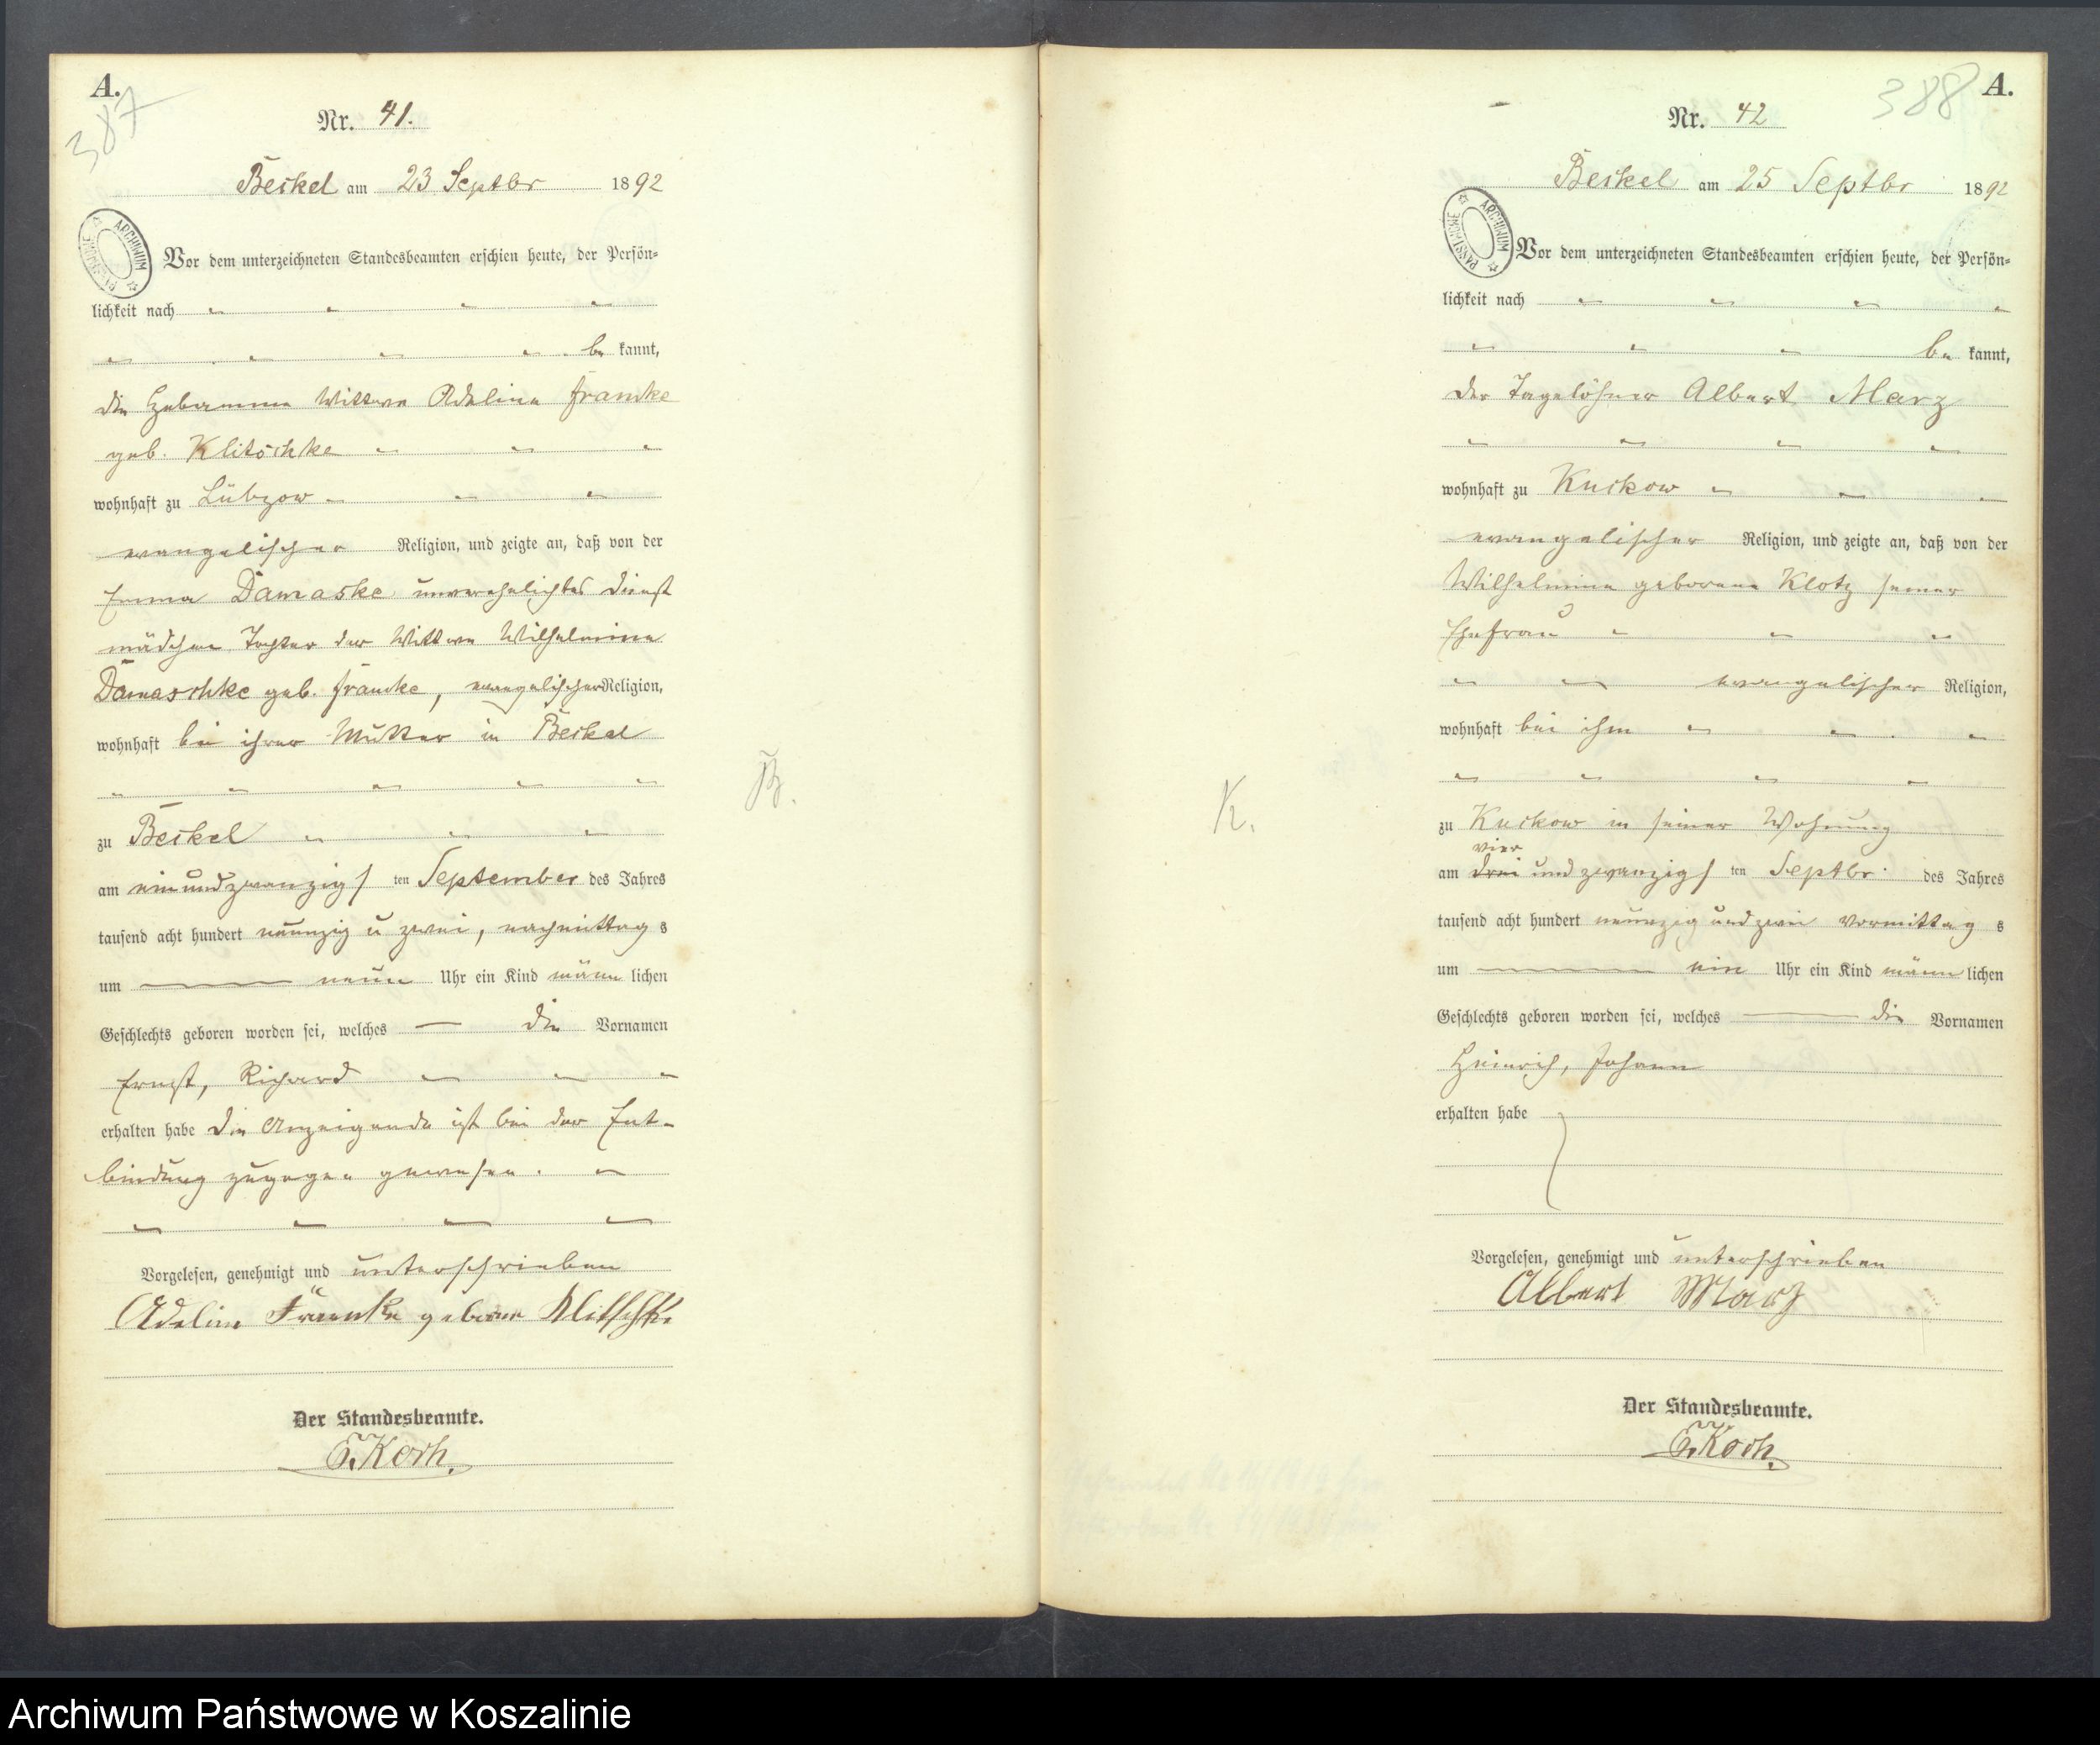 A.
387
Nr. 41.
Beckel am 23 Septbr 1892
ARCHIWUM PAŃSTWOWE
Vor dem unterzeichneten Standesbeamten erschien heute, der Persön=
lichkeit nach
be kannt,
die Hebamme Wittwe Adeline Francke
geb. Klitschke
wohnhaft zu Lübzow
evangelischer Religion, und zeigte an, daß von der
Emma Damaske unverehelichtes Dienst
mädchen Tochter der Wittwe Wilhelmine
Damaschke geb. Francke, evangelischer Religion,
wohnhaft bei ihrer Mutter in Beckel
zu Beckel
am ein und zwanzigs ten September des Jahres
tausend acht hundert neunzig u zwei, nachmittag s
um neun Uhr ein Kind männ lichen
Geschlechts geboren worden sei, welches die Vornamen
Ernst, Richard
erhalten habe die Anzeigende ist bei der Ent-
bindung zugegen gewesen.
Vorgelesen, genehmigt und unterschrieben
Adeline Francke geborne Klitschke
Der Standesbeamte.
E. Koch.
B.
A.
388
Nr. 42
Beckel am 25 Septbr 1892
ARCHIWUM PAŃSTWOWE
Vor dem unterzeichneten Standesbeamten erschien heute, der Persön=
lichkeit nach
be kannt,
der Tagelöhner Albert Marz
wohnhaft zu Kuckow
evangelischer Religion, und zeigte an, daß von der
Wilhelmine geborene Klotz seiner
Ehefrau
evangelischer Religion,
wohnhaft bei ihm
K.
zu Kuckow in seiner Wohnung
vier
am drei und zwanzigs ten Septbr. des Jahres
tausend acht hundert neunzig und zwei vormittag s
um ein Uhr ein Kind männ lichen
Geschlechts geboren worden sei, welches die Vornamen
Heinrich, Johann
erhalten habe
Vorgelesen, genehmigt und unterschrieben
Albert Marz
Der Standesbeamte.
E. Koch.
Archiwum Państwowe w Koszalinie